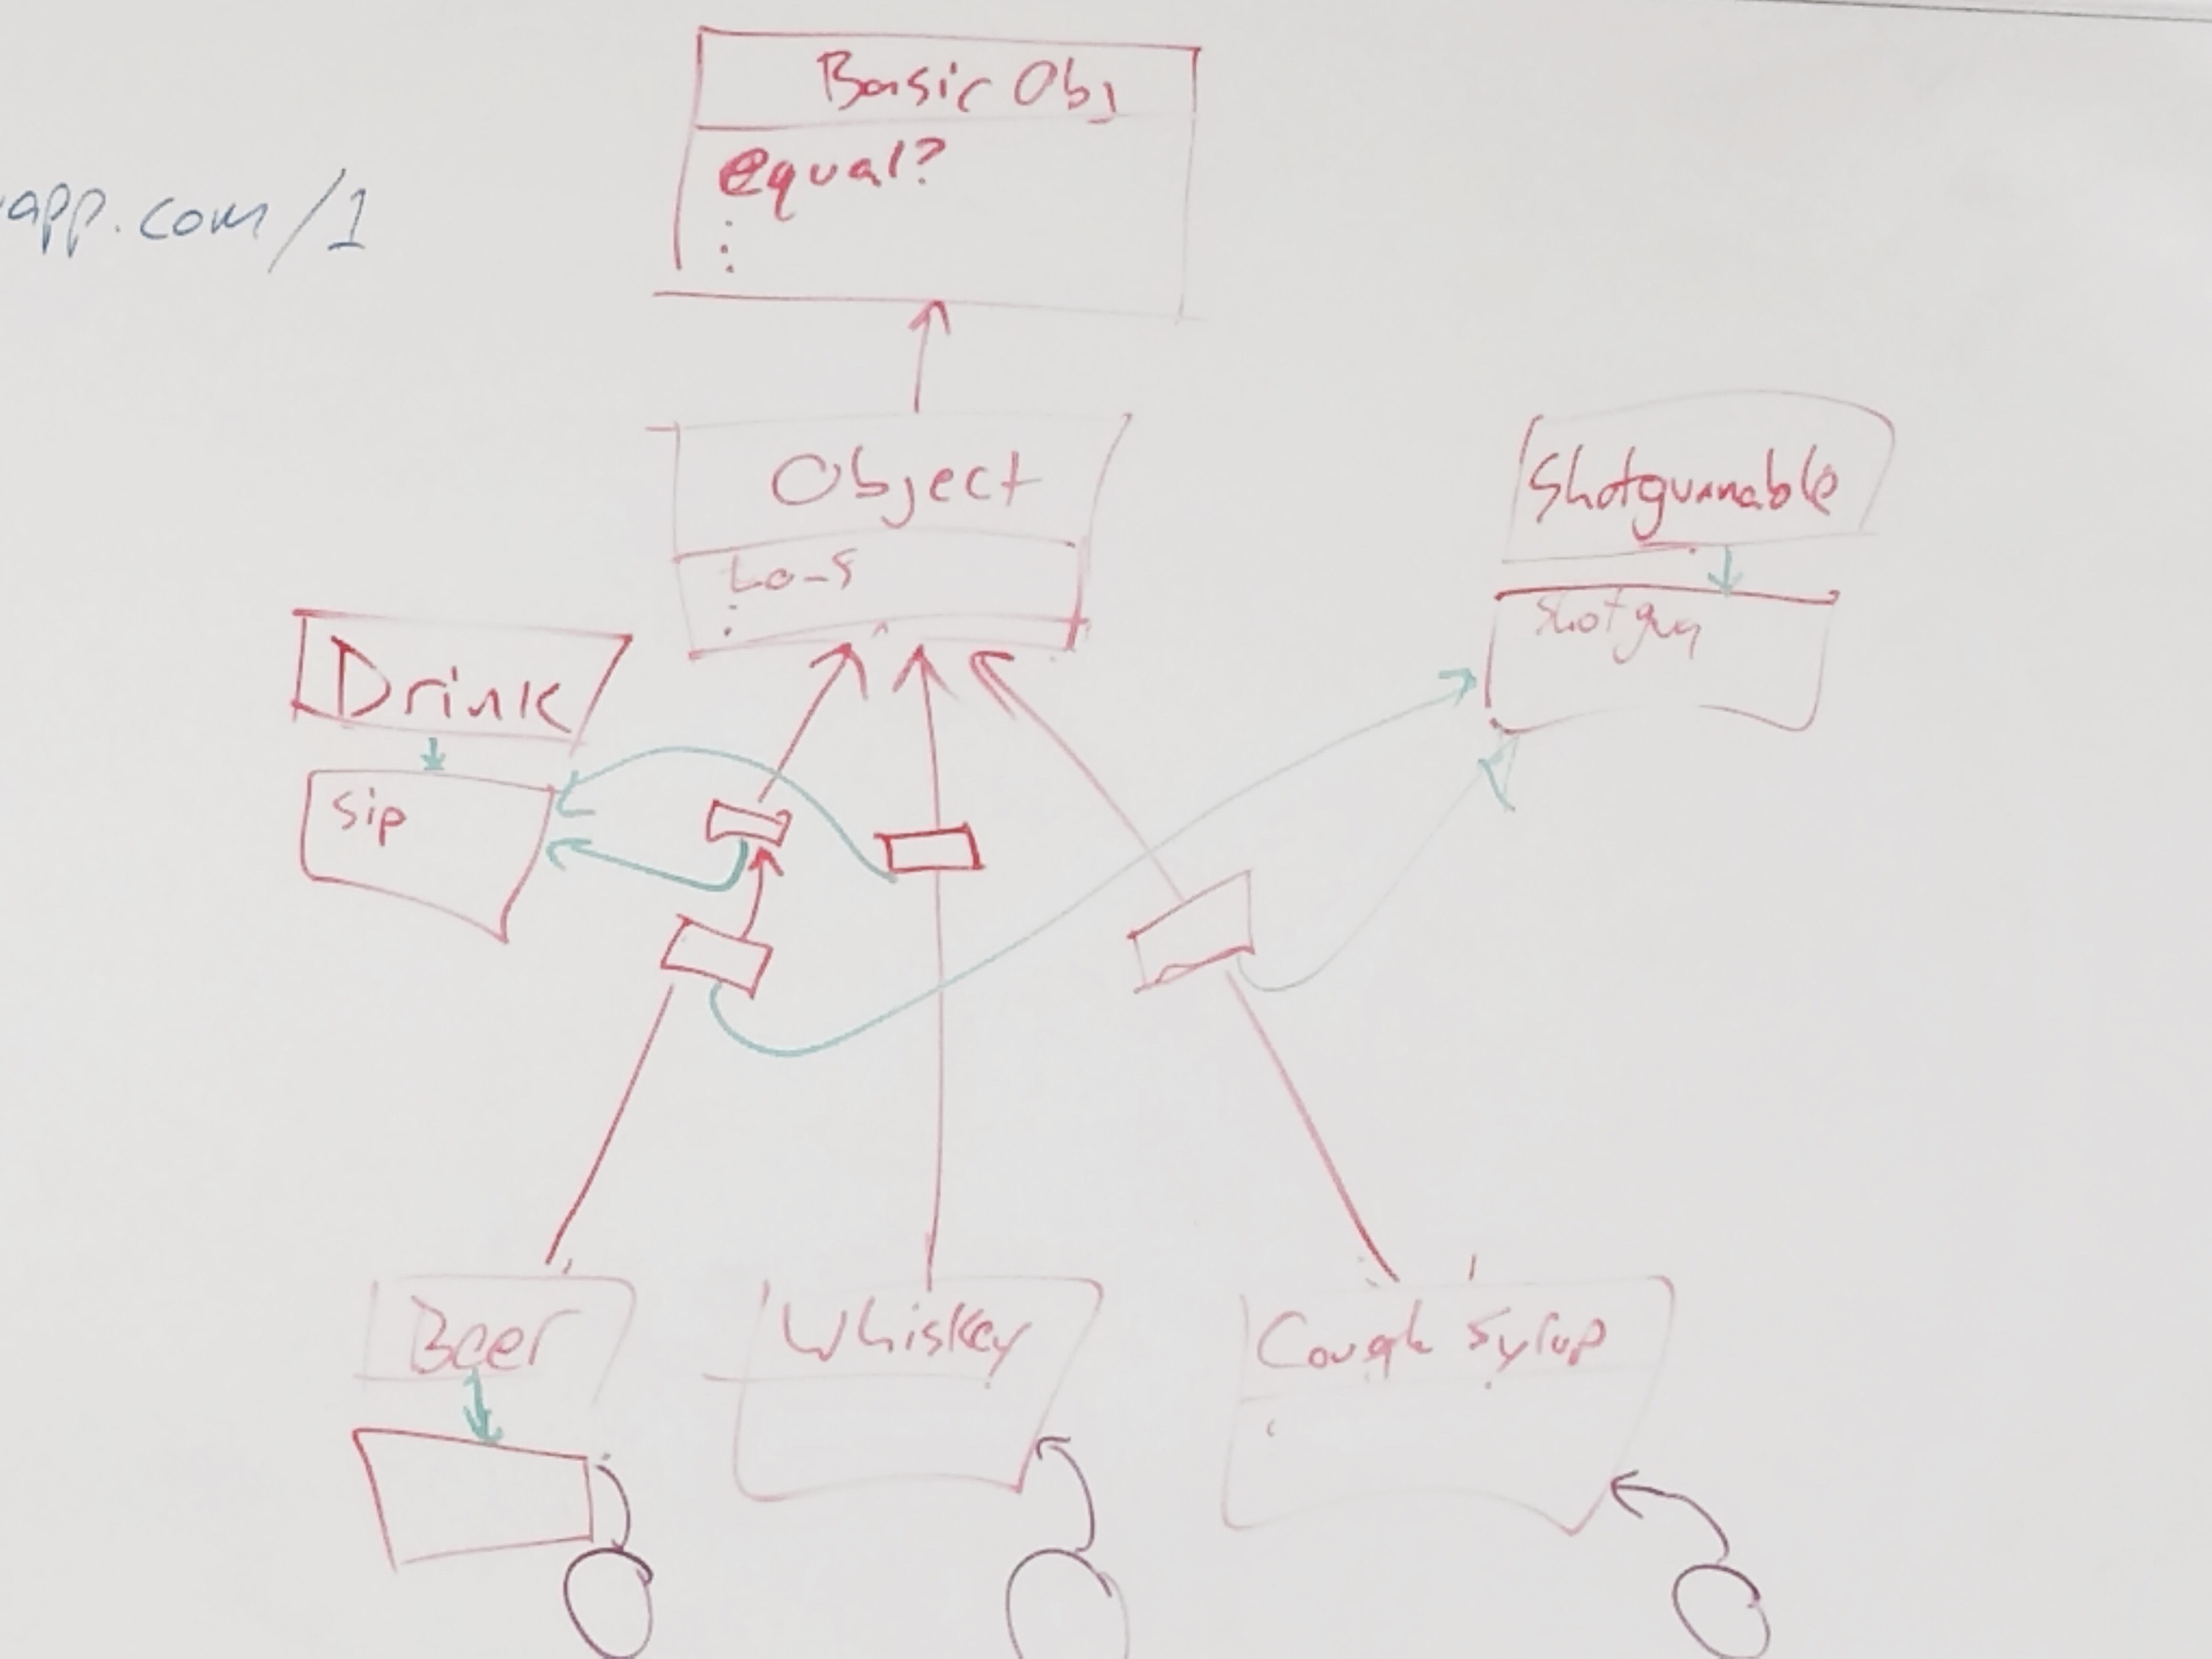 Basic Obj
equal?
app.com/1
Object
to_s
Shotgunnable
shotgun
Drink
sip
Beer
Whiskey
Cough Syrup